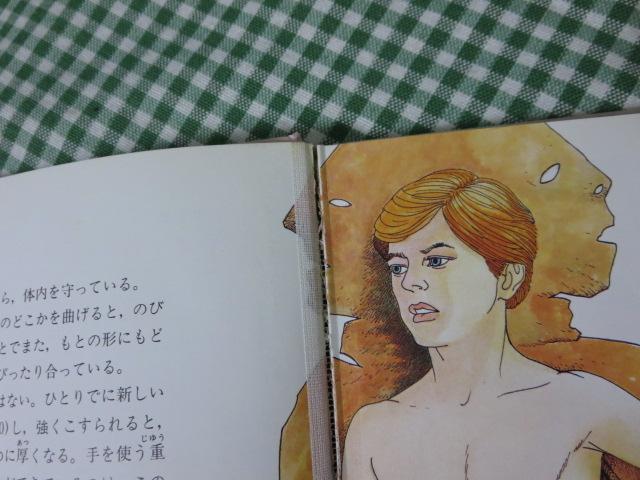 ら，体内を守っている。
のどこかを曲げると，のび
とでまた，もとの形にもど
ぴったり合っている。
はない。ひとりでに新しい
し，強くこすられると，
に厚くなる。手を使う重
あつ
じゅう